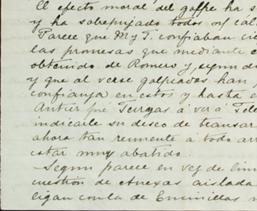 El efecto moral del golpe ha s
y ha sobrepujado todos mis cál
Parece que M y T. confiaban cie
las promesas que mediante c
obtenido de Romero y, segun d
y que al verse golpeados han
confianza en estos y hasta e
Antier fué Vargas á ver á Tele
indicarle su deseo de transar
ahora tan renuente á todo arr
estar muy abatido.
Segun parece en vez de lim
cuestion de Ateyas aislada
ligan con la de Encinillas